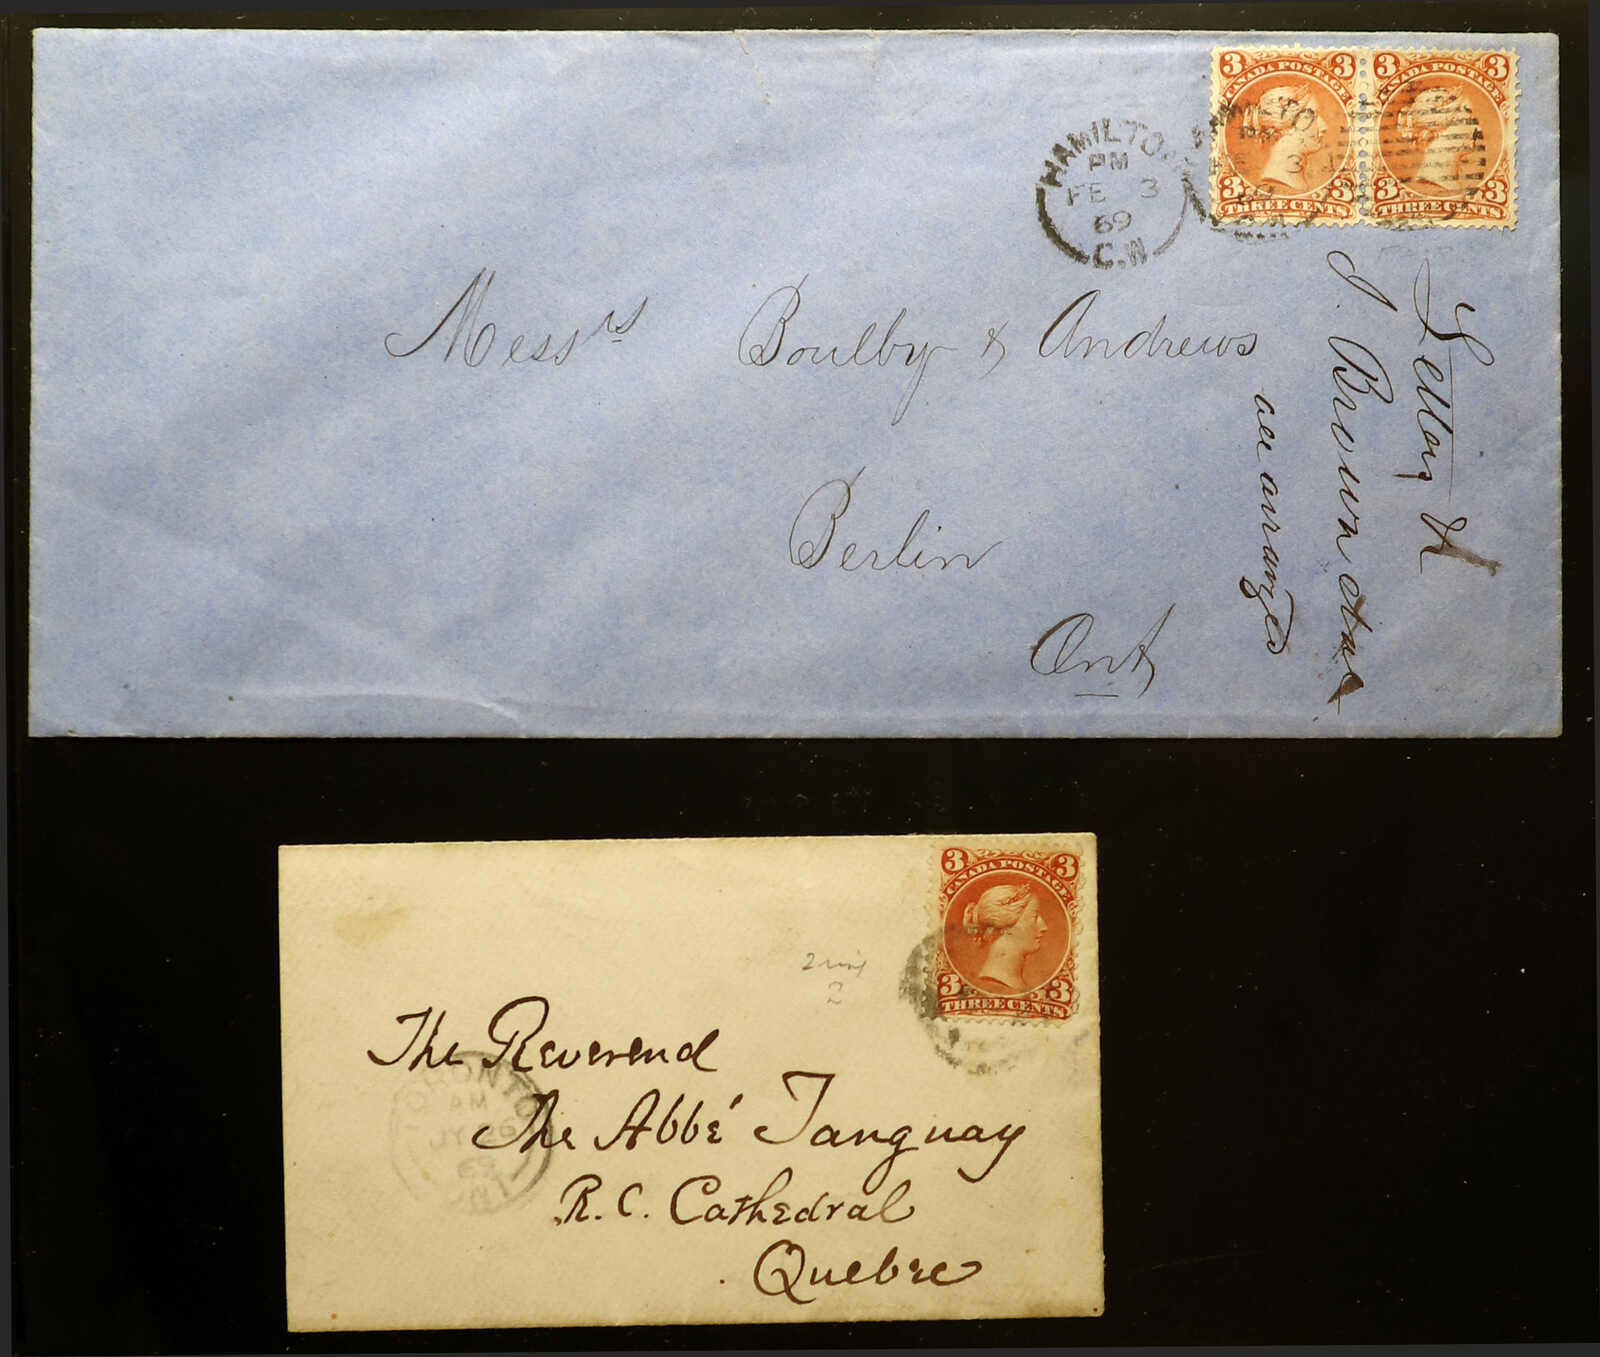 3 CANADA POSTAGE 3
3 THREE CENTS 3
3 CANADA POSTAGE 3
3 THREE CENTS 3
HAMILTON
PM
FE 3
69
C.W.
HAMILTON
PM
FE 3
Messrs Boulby & Andrews
Berlin
Ont
J. Brown
as arranged
3 CANADA POSTAGE 3
3 THREE CENTS 3
2
The Reverend
The Abbé Tanguay
R. C. Cathedral
Quebec
TORONTO